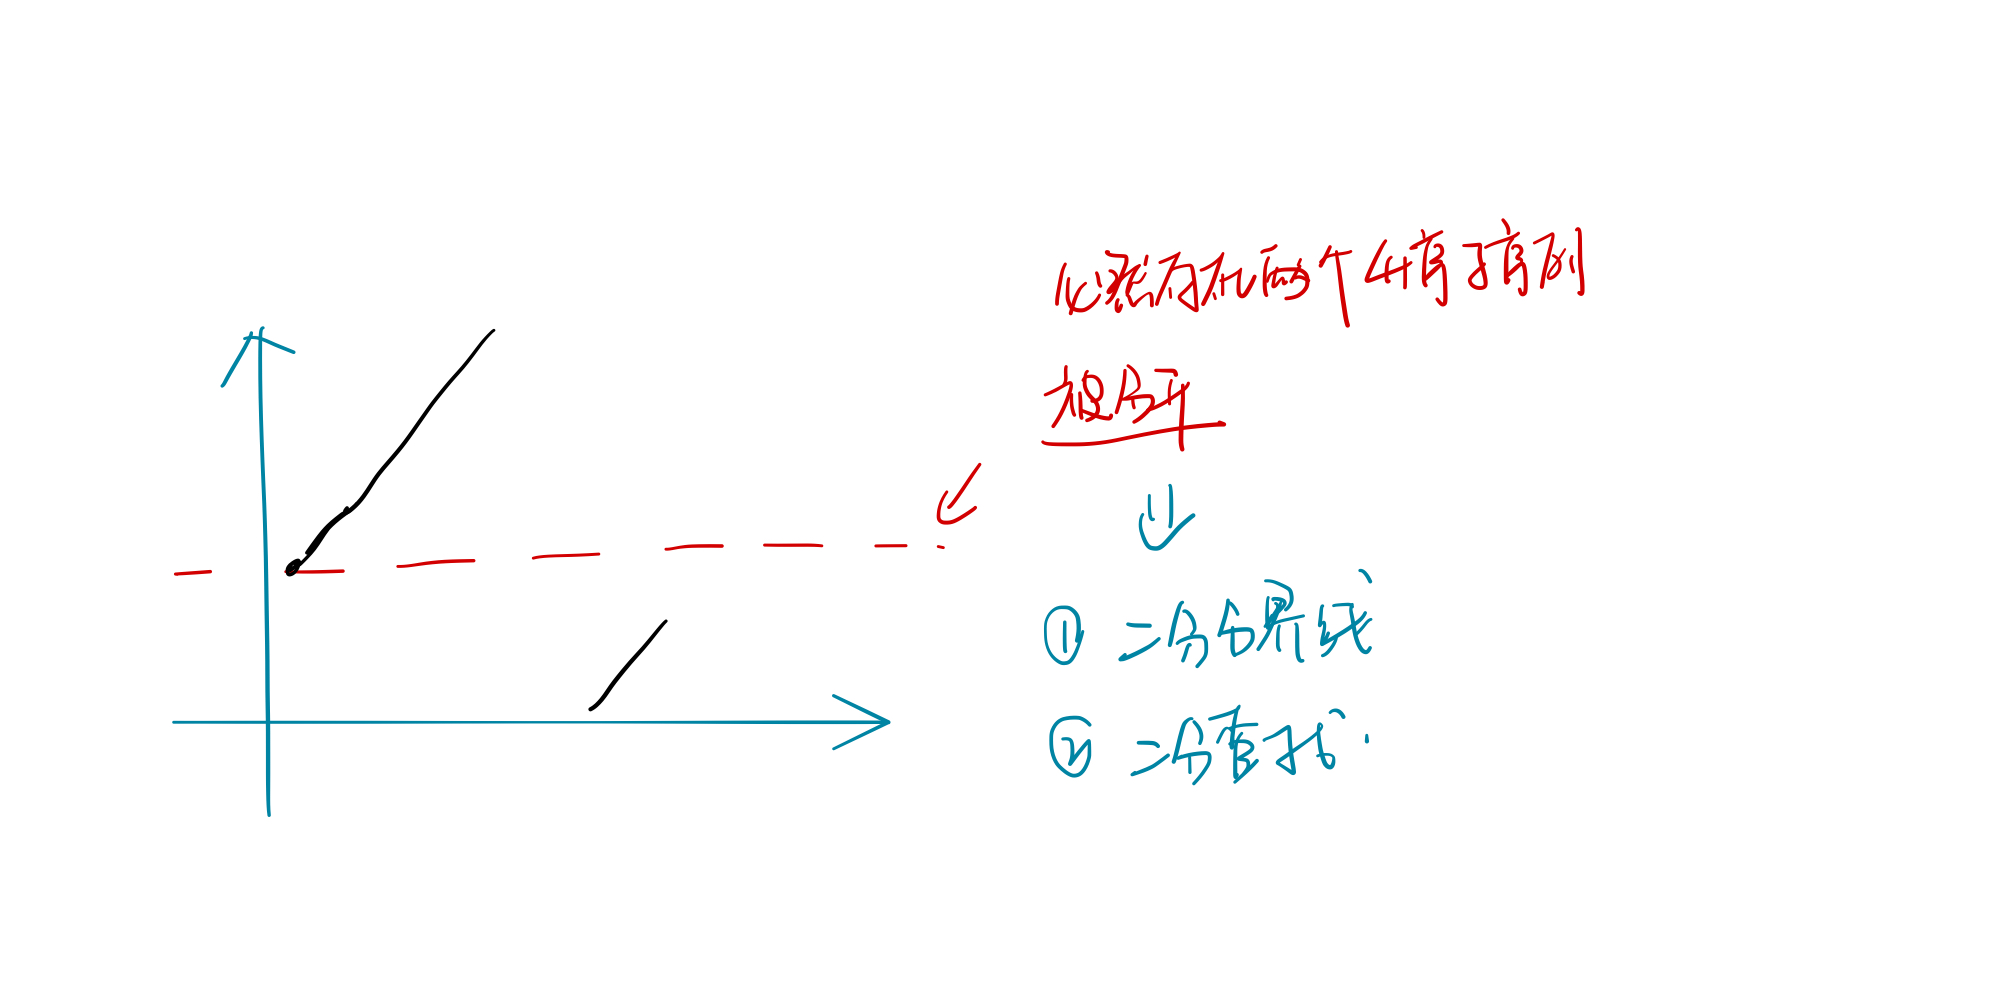 必然有两个升序子序列
被分开
① 二分分界线
② 二分查找.